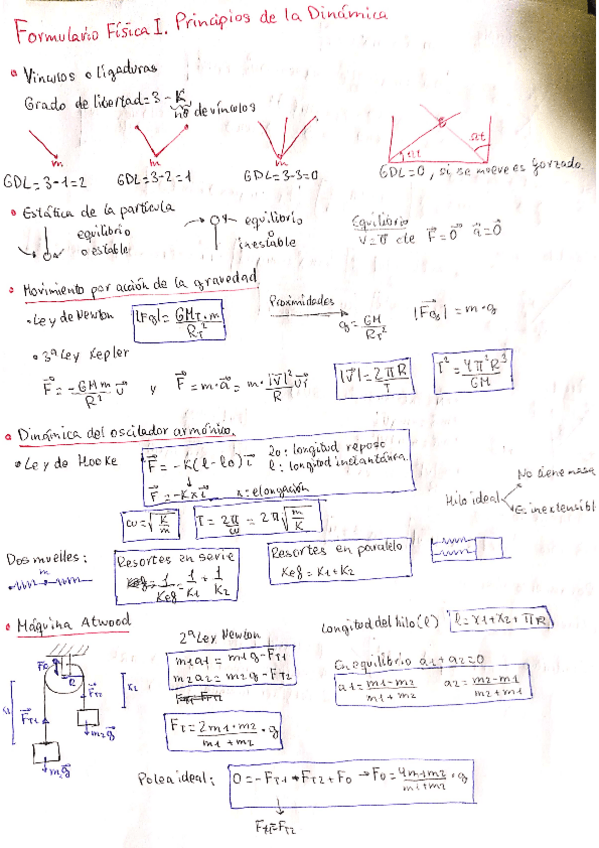 Formulario Física I. Principios de la Dinámica
• Vínculos o ligaduras
Grado de libertad = 3 - K
nº de vínculos
m
m
m
Ωt
Ωt
GDL = 3-1 = 2
GDL = 3-2 = 1
GDL = 3-3 = 0
GDL = 0, si se mueve es forzado.
• Estática de la partícula
equilibrio
o estable
equilibrio
o
inestable
Equilibrio
v⃗ = 0⃗ de F⃗ = 0⃗ a⃗ = 0⃗
• Movimiento por acción de la gravedad
• Ley de Newton |F⃗g| = GMT·m / RT²
Proximidades
g = GM / RT²
|F⃗g| = m·g
• 3ª Ley Kepler
F⃗ = -GMm / R² u⃗ y F⃗ = m·a⃗ = m·|v⃗|² / R u⃗r
|v⃗| = 2πR / T
T² = 4π²R³ / GM
• Dinámica del oscilador armónico.
• Ley de Hooke
F⃗ = -K(l - l0) i⃗
l0: longitud reposo
l: longitud instantánea
F⃗ = -Kx i⃗
x: elongación
ω = √(K/m)
T = 2π/ω = 2π√(m/K)
Hilo ideal
No tiene masa
Es inextensible
Dos muelles:
m
Resortes en serie
1/Kef = 1/K1 + 1/K2
Resortes en paralelo
Kef = K1 + K2
• Máquina Atwood
2ª Ley Newton
m1a1 = m1g - FT1
m2a2 = m2g - FT2
Longitud del hilo (l) l = x1 + x2 + πR
En equilibrio a1 + a2 = 0
a1 = m1 - m2 / m1 + m2 a2 = m2 - m1 / m2 + m1
FT = 2m1·m2 / m1 + m2 · g
R
F⃗T1
F⃗T2
x2
m2g⃗
m1g⃗
Polea ideal: 0 = -FT1 - FT2 + F0 → F0 = 4m1m2 / m1 + m2 · g
FT1 = FT2